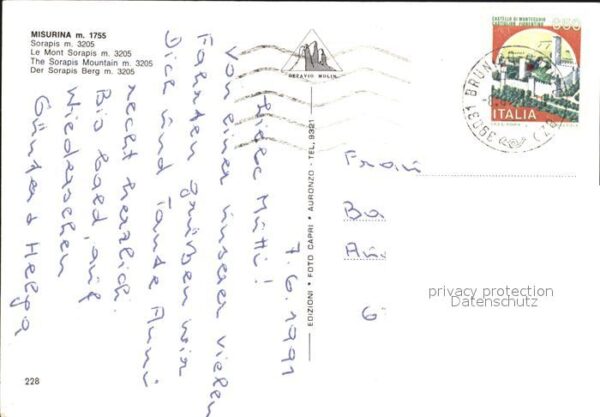 MISURINA m. 1755
Sorapis m. 3205
Le Mont Sorapis m. 3205
The Sorapis Mountain m. 3205
Der Sorapis Berg m. 3205
OTTAVIO MOLIN
CASTELLO DI MONTECCHIO
CASTIGLION FIORENTINO
650
ITALIA
39031 BRUN
(BZ)
7.6.1991
Liebe Mutti!
Von einer unserer vielen
Fahrten grüßen wir
Dich und Tante Anni
recht herzlich.
Bis bald, auf
Wiedersehen
Günter + Helga
EDIZIONI * FOTO CAPRI * AURONZO - TEL. 9321
Frau
Ba
6
privacy protection
Datenschutz
228